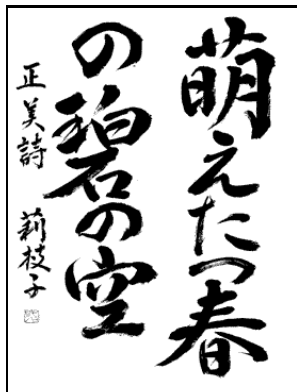 萌えたつ春
の碧の空
正美詩 莉枝子